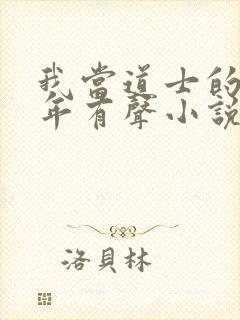 我當道士的
年有聲小說
洛貝林